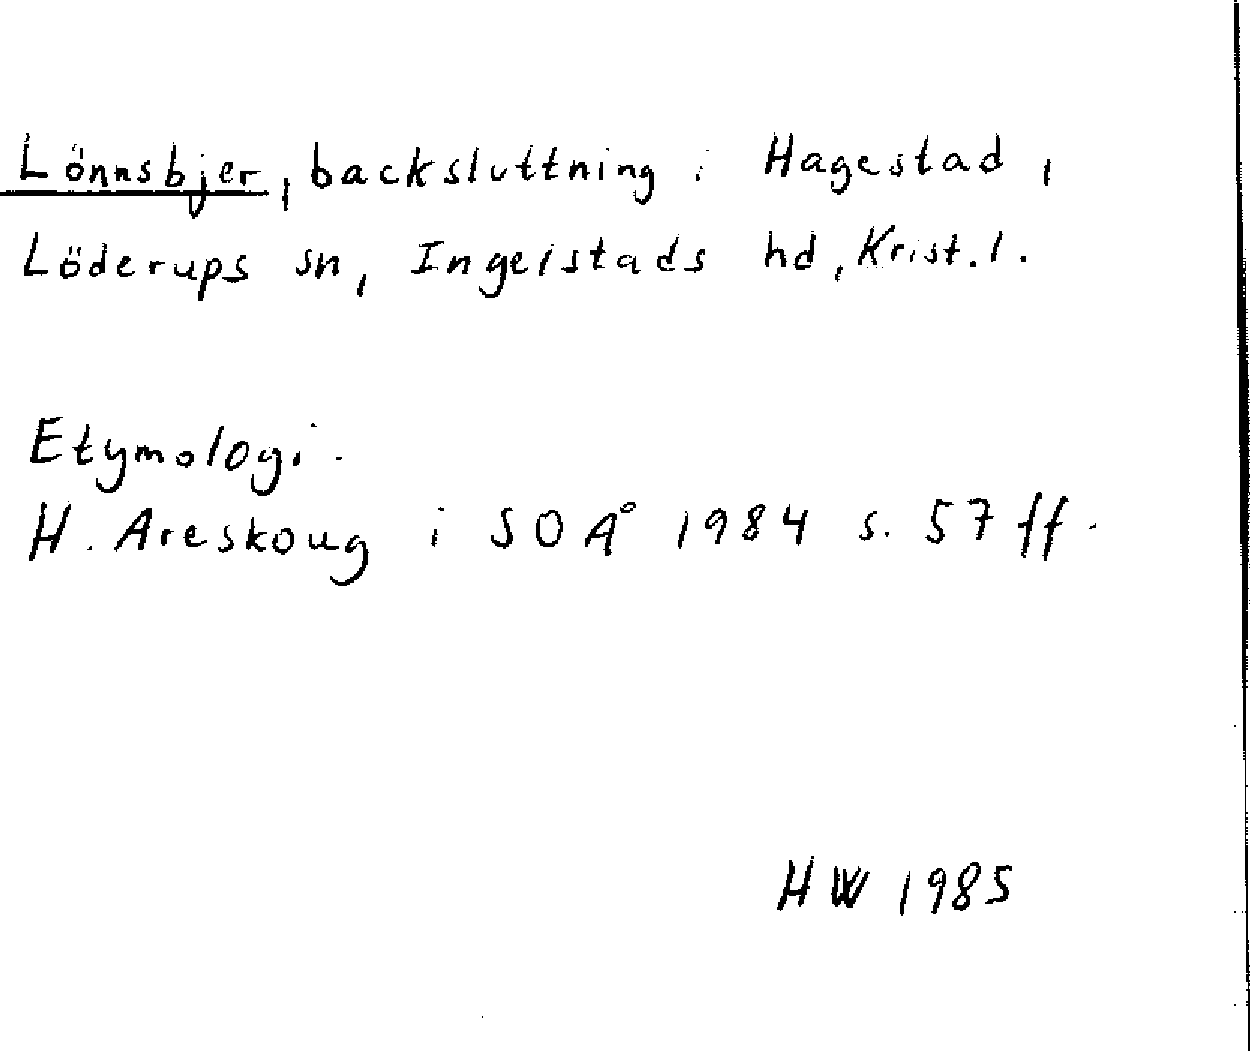 Lönnsbjer, backsluttning i Hagestad,
Löderups sn, Ingelstads hd, Krist. l.
Etymologi.
H. Areskoug i SOÅ 1984 s. 57 ff.
HW 1985